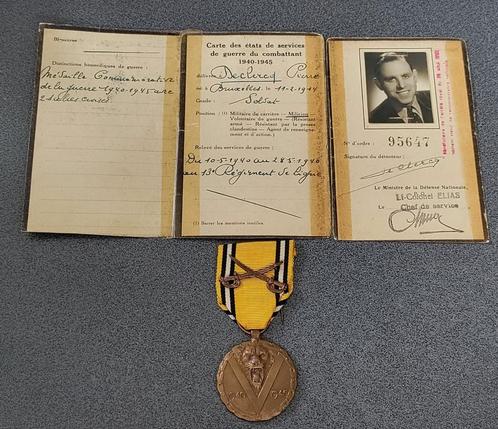 Distinctions honorifiques de guerre :
Médaille Commémorative
de la guerre 1940-1945 avec
2 sabres croisés
Carte des états de services
de guerre du combattant
1940-1945
Declercq Pierre
né à Bruxelles 11-2-1914
Grade : Soldat
Position : (1) Militaire de carrière — Milicien
Volontaire de guerre — (Résistant
armé — Résistant par la presse
clandestine — Agent de renseignement
et d'action.)
Relevé des services de guerre :
Du 10-5-1940 au 28-5-1940
au 13e Régiment de Ligne
(1) Barrer les mentions inutiles.
N° d'ordre : 95647
Signature du détenteur :
Le Ministre de la Défense Nationale,
Lt-Colonel ELIAS
Le Chef de service
1940 V 1945